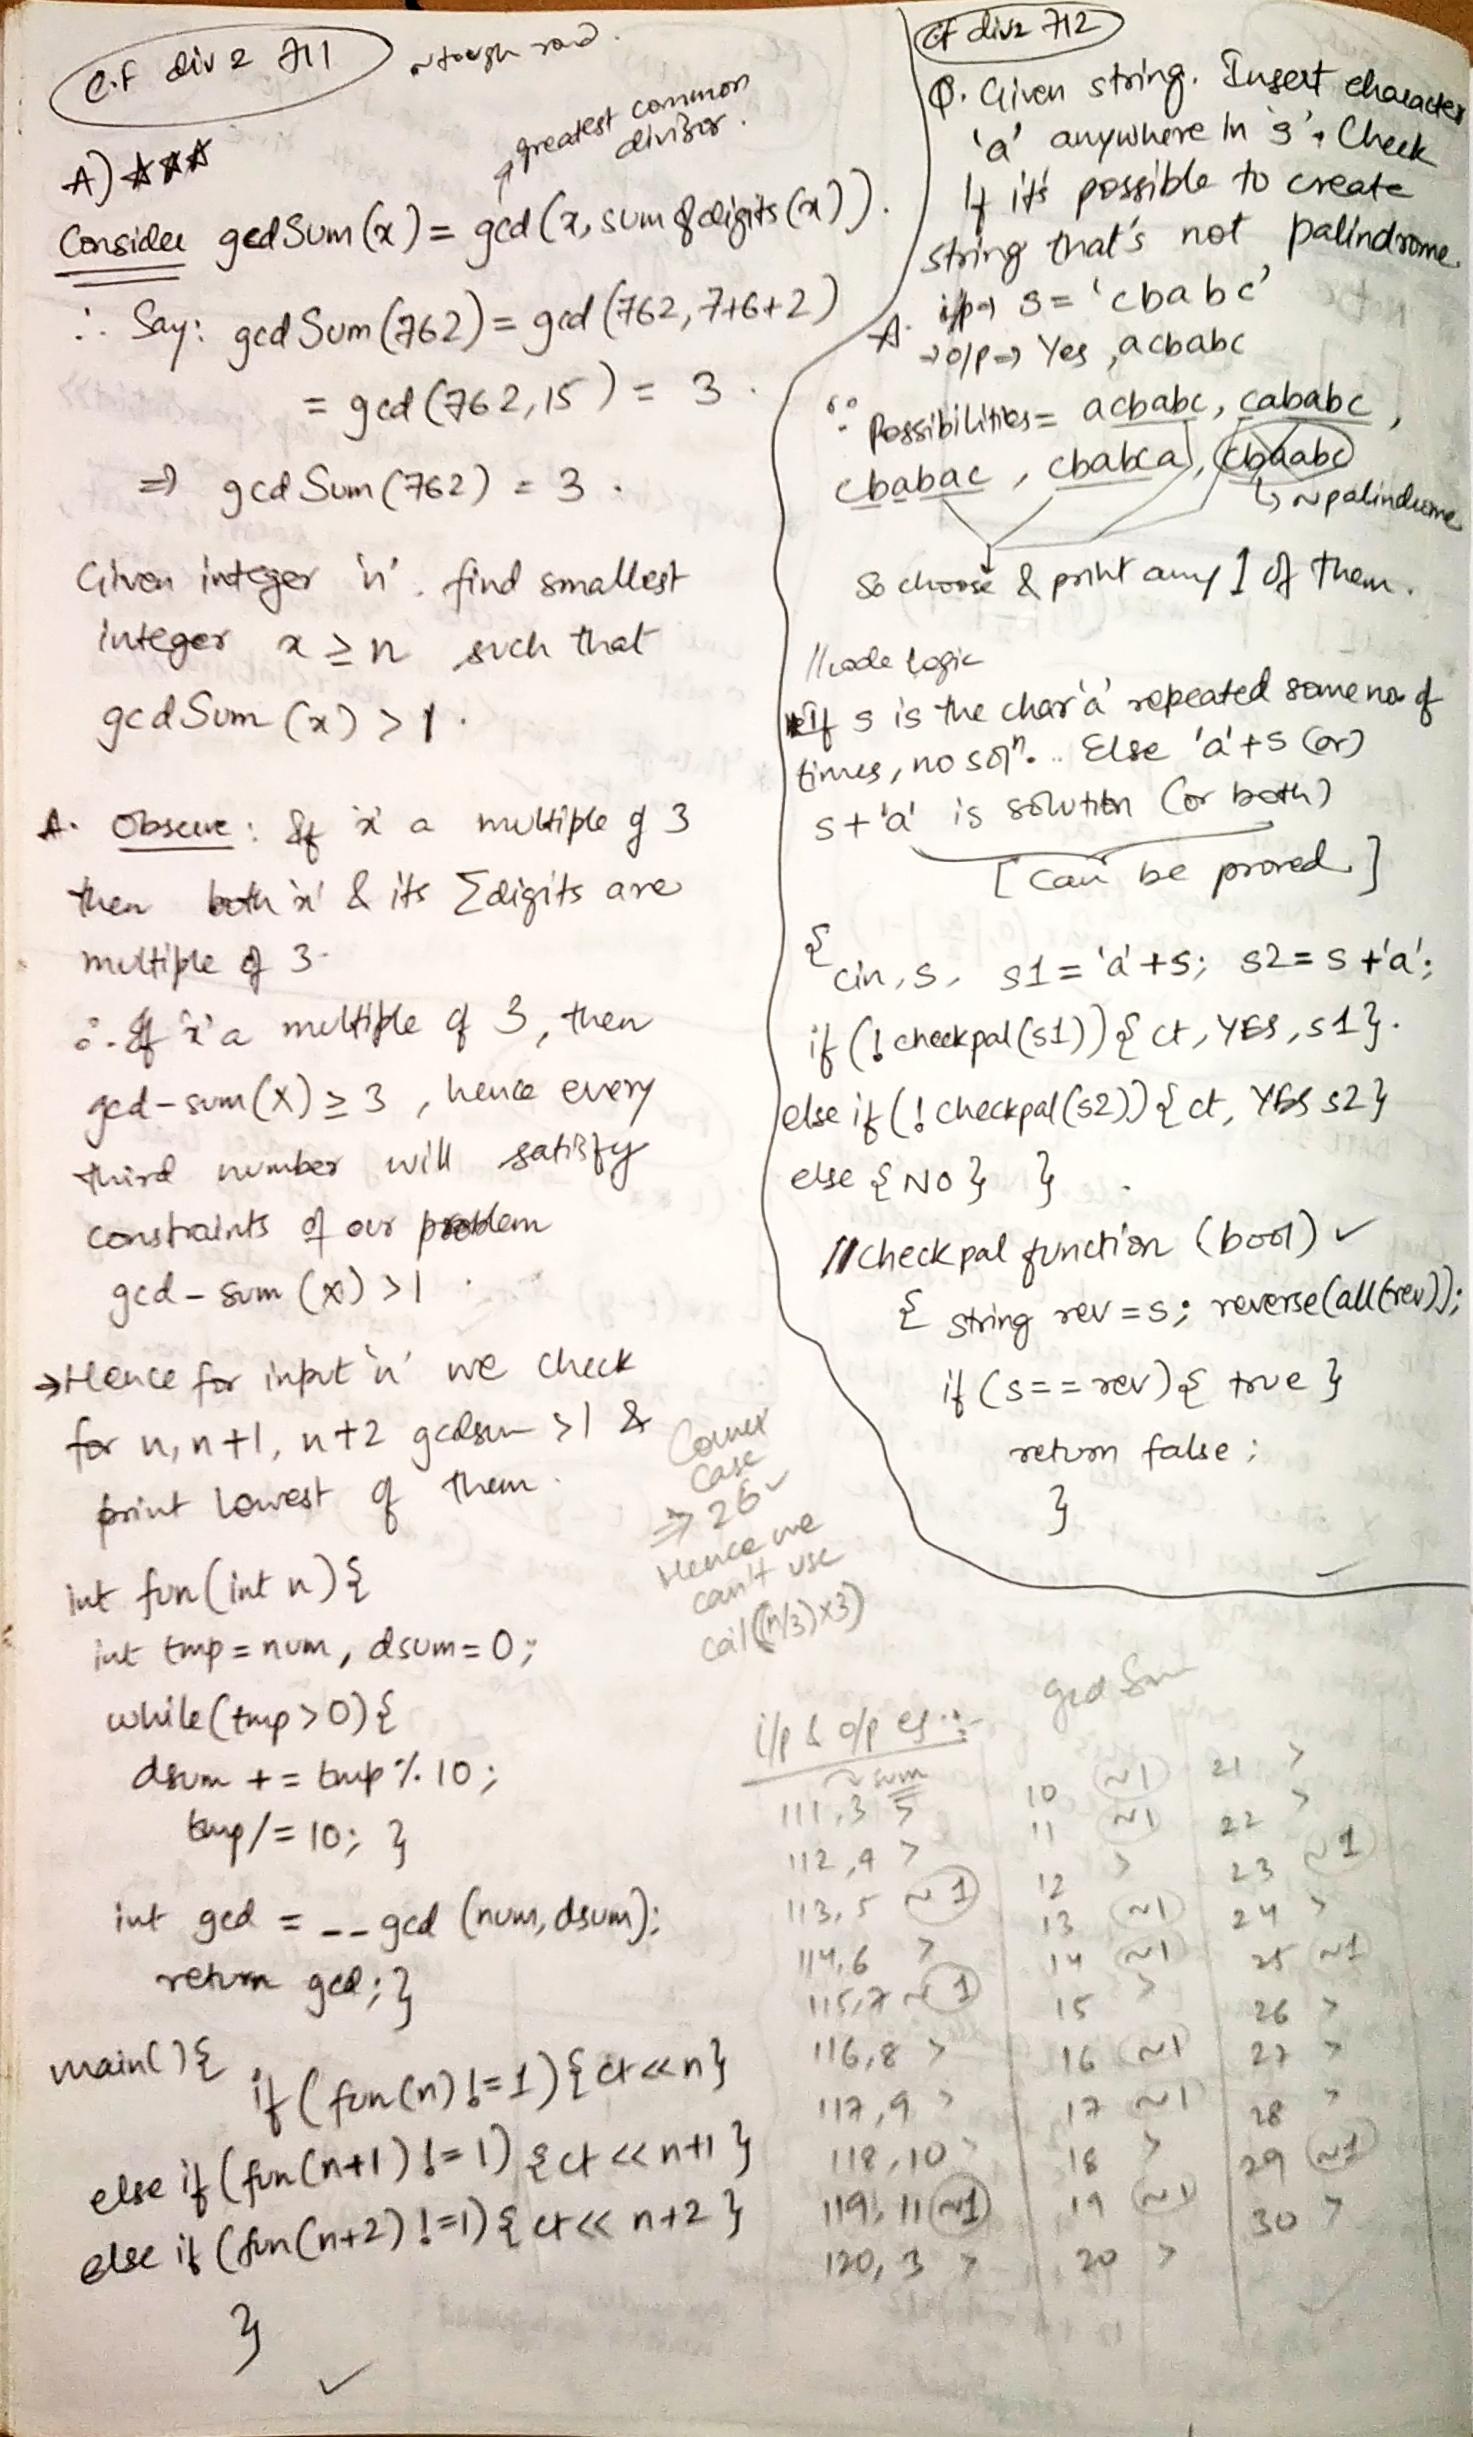 C.F div 2 711
A) ☆☆☆
greatest common
divisor.
Consider gcdSum(x) = gcd(x, sum of digits(x)).
∴ Say: gcdSum(762) = gcd(762, 7+6+2)
= gcd(762, 15) = 3.
⇒ gcdSum(762) = 3.
Given integer 'n'. find smallest
integer x ≥ n such that
gcdSum(x) > 1.
A. Observe: If 'x' a multiple of 3
then both 'x' & its Σdigits are
multiple of 3.
∴ If 'x' a multiple of 3, then
gcd-sum(X) ≥ 3, hence every
third number will satisfy
constraints of our problem
gcd-sum(x) > 1.
→ Hence for input 'n' we check
for n, n+1, n+2 gcdsum > 1 &
print lowest of them.
Corner
Case
⇒ 26 ✓
Hence we
can't use
cail((n/3)x3)
int fun(int n){
int tmp = num, dsum = 0;
while(tmp>0){
dsum += tmp % 10;
tmp /= 10; }
int gcd = __gcd (num, dsum);
return gcd; }
main(){
if (fun(n) != 1) {ct << n}
else if (fun(n+1) != 1) {ct << n+1 }
else if (fun(n+2) != 1) {ct << n+2 }
}
✓
Cf div2 712
Q. Given string. Insert character
'a' anywhere in 's'. Check
If it's possible to create
string that's not palindrome.
A. i/p→ s = 'cbabc'
→ o/p→ Yes, acbabc
∵ Possibilities = acbabc, cababc,
cbabac, cbabca, cbaabc
↳ ~palindrome
So choose & print any 1 of them.
//code logic
If s is the char 'a' repeated some no of
times, no solⁿ. Else 'a'+s (or)
s+'a' is solution (or both)
[Can be proved]
{
cin, s, s1 = 'a'+s; s2 = s+'a';
if (!checkpal(s1)) { ct, YES, s1}.
else if (!checkpal(s2)) { ct, YES s2}
else { NO } }
//checkpal function (bool) ✓
{ string rev = s; reverse(all(rev));
if (s == rev) { true }
return false;
}
i/p & o/p eg :-
~sum
111, 3 >
112, 4 >
113, 5 ~1
114, 6 >
115, 7 ~1
116, 8 >
117, 9 >
118, 10 >
119, 11 ~1
120, 3 >
gcd Sum
10 ~1
11 ~1
12 >
13 ~1
14 ~1
15 >
16 ~1
17 ~1
18 >
19 ~1
20 >
21 >
22 >
23 ~1
24 >
25 ~1
26 >
27 >
28 >
29 ~1
30 >